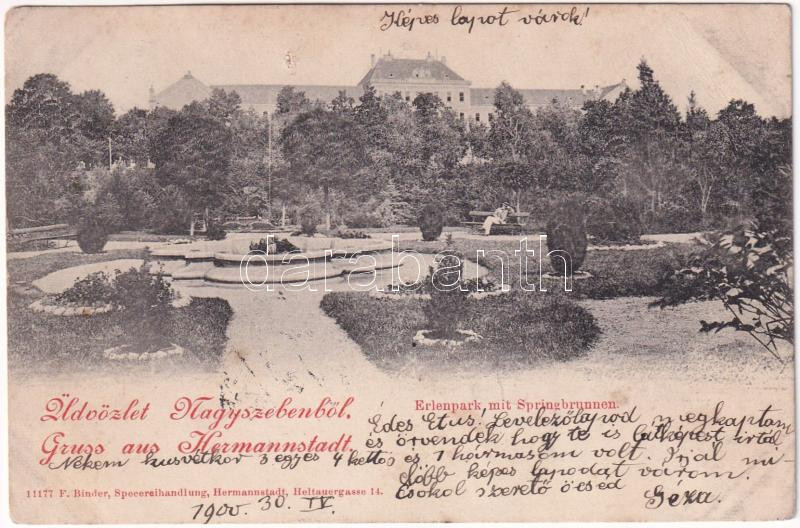 Képes lapot várok!
darabanth
Üdvözlet Nagyszebenből.
Gruss aus Hermannstadt.
Erlenpark mit Springbrunnen.
Édes Etus! Levelezőlapod megkaptam
és örvendek hogy te is látképest írtál
Nekem husvétkor 3 egyes 4 kettős és 1 hármasom volt. Írjál mi-
előbb képes lapodat várom.
Csókol szerető öcséd
Géza.
11177 F. Binder, Specereihandlung, Hermannstadt, Heltauergasse 14.
1900. 30. IV.